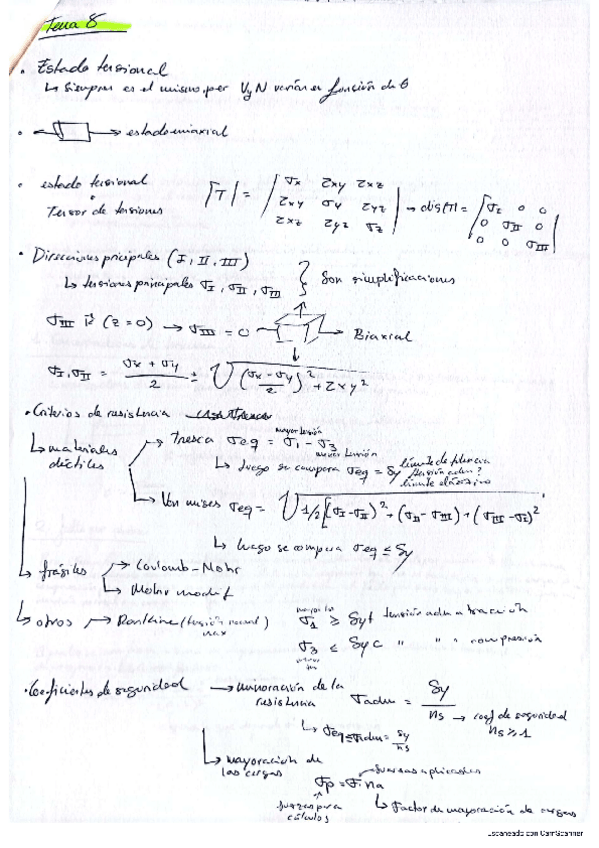 Tema 8
· Estado tensional
↳ Siempre es el mismo, pero V y N varían en función de θ
· → estado uniaxial
· estado tensional
Tensor de tensiones
|T| = | σx τxy τxz |
| τxy σy τyz |
| τxz τyz σz |
→ dis(T) = | σI 0 0 |
| 0 σII 0 |
| 0 0 σIII |
· Direcciones pricipales (I, II, III)
↳ tensiones principales σI, σII, σIII } Son simplificaciones
σIII (z = 0) → σIII = 0 → Biaxial
σI, σII = (σx + σy)/2 ± √((σx − σy)/2)² + τxy²
· Criterios de resistencia
↳ materiales dúctiles
→ Tresca σeq = σ1 − σ3
mayor tensión
menor tensión
↳ luego se compara σeq = Sy
límite de fluencia
tensión adm?
límite elástico
↳ Von mises σeq = √1/2[(σI−σII)² + (σII−σIII) + (σIII−σI)²
↳ luego se compara σeq ≤ Sy
↳ frágiles → Coulomb-Mohr
↳ Mohr modif
↳ otros → Rankine (tensión normal max)
σ1 ≥ Syt tensión adm a tracción
σ3 ≤ Syc " " " compresión
· Coeficientes de seguridad → minoración de la resistencia
σadm = Sy/ns → coef de seguridad
ns ≥ 1
↳ σeq ≤ σadm = Sy/ns
↳ mayoración de las cargas
fuerzas aplicadas
fuerzas para cálculos
↳ Factor de mayoración de cargas
Escaneado con CamScanner